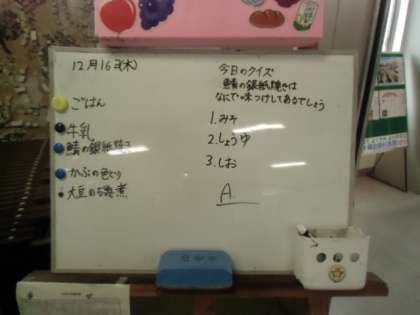 12月16日(木)
ごはん
牛乳
鯖の銀紙焼き
かぶの色とり
大豆の五目煮
今日のクイズ
鯖の銀紙焼きは
なにで味つけしてあるでしょう
1.みそ
2.しょうゆ
3.しお
A